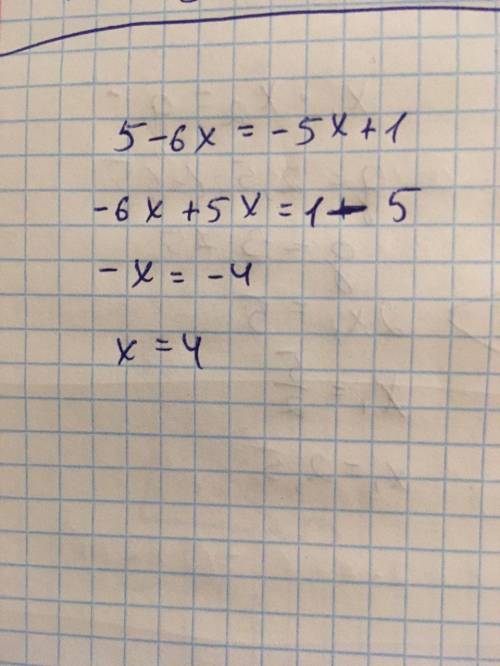 5-6x = -5x+1
-6x +5x = 1 - 5
-x = -4
x = 4